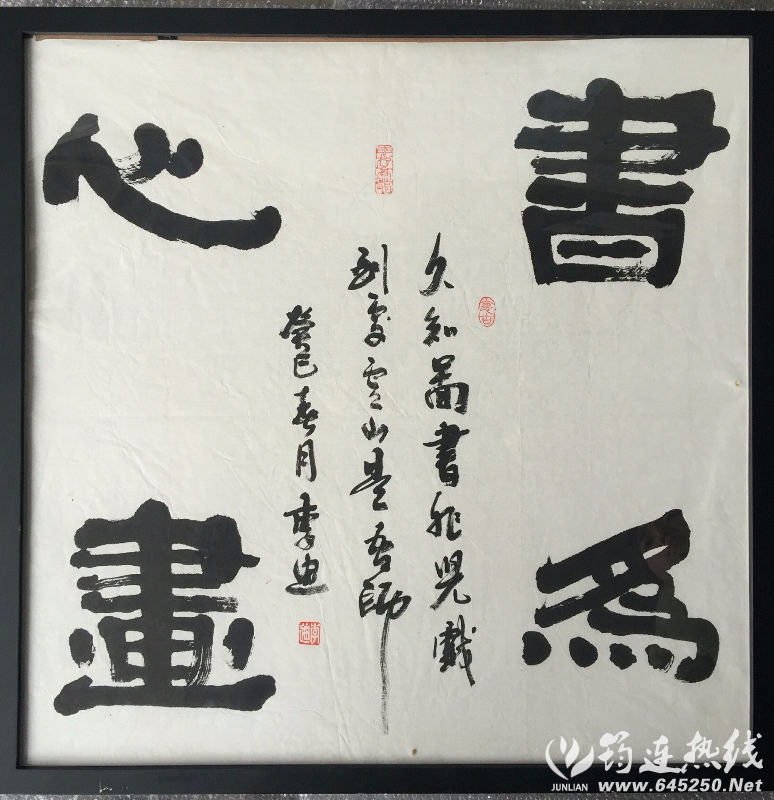 書為
心畫
久知圖書非兒戲
到處雲山是吾師
癸巳春月李迪
筠连热线
JUNLIAN www.645250.Net